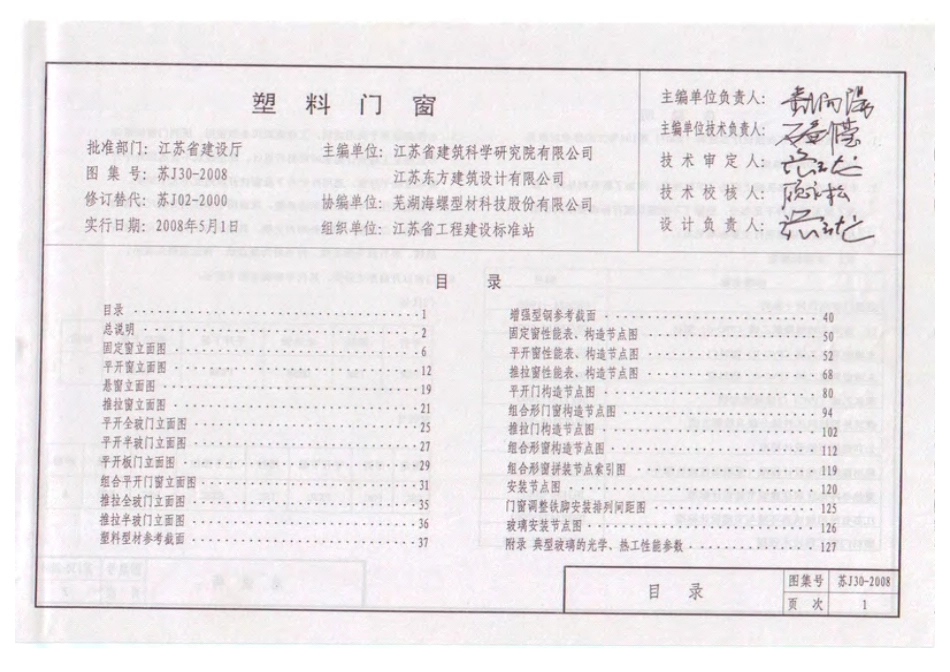 塑料门窗
批准部门：江苏省建设厅
图集号：苏J30-2008
修订替代：苏J02-2000
实行日期：2008年5月1日
主编单位：江苏省建筑科学研究院有限公司
江苏东方建筑设计有限公司
协编单位：芜湖海螺型材科技股份有限公司
组织单位：江苏省工程建设标准站
主编单位负责人：
主编单位技术负责人：
技术审定人：
技术校核人：
设计负责人：
目 录
目录 ························ 1
总说明 ························ 2
固定窗立面图 ························ 6
平开窗立面图 ························ 12
悬窗立面图 ························ 19
推拉窗立面图 ························ 21
平开全玻门立面图 ························ 25
平开半玻门立面图 ························ 27
平开板门立面图 ························ 29
组合平开门窗立面图 ························ 31
推拉全玻门立面图 ························ 35
推拉半玻门立面图 ························ 36
塑料型材参考截面 ························ 37
增强型钢参考截面 ························ 40
固定窗性能表、构造节点图 ························ 50
平开窗性能表、构造节点图 ························ 52
推拉窗性能表、构造节点图 ························ 68
平开门构造节点图 ························ 80
组合形门窗构造节点图 ························ 94
推拉门构造节点图 ························ 102
组合形窗构造节点图 ························ 112
组合形窗拼装节点索引图 ························ 119
安装节点图 ························ 120
门窗调整铁脚安装排列间距图 ························ 125
玻璃安装节点图 ························ 126
附录 典型玻璃的光学、热工性能参数 ························ 127
目 录
图集号 苏J30-2008
页次 1